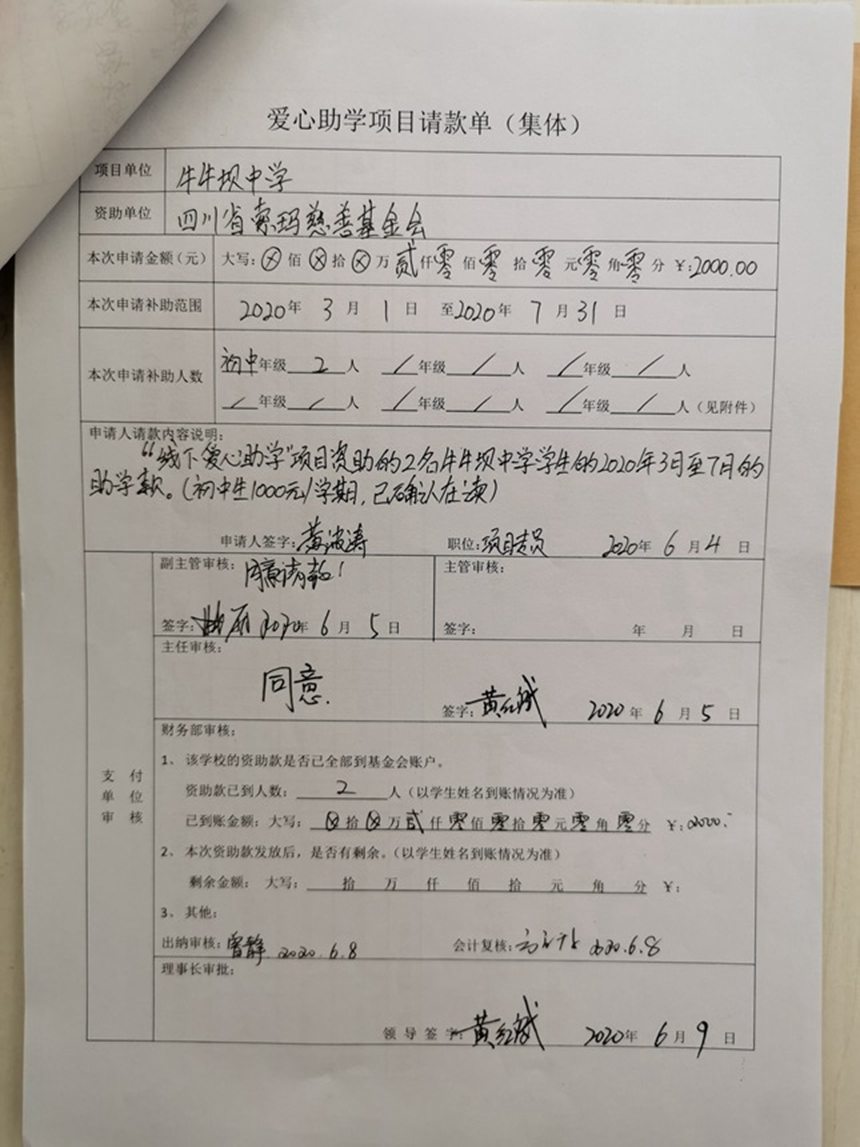 爱心助学项目请款单（集体）
项目单位 牛牛坝中学
资助单位 四川省索玛慈善基金会
本次申请金额（元） 大写：ⓧ佰ⓧ拾ⓧ万贰仟零佰零拾零元零角零分 ￥：2000.00
本次申请补助范围 2020年3月1日 至2020年7月31日
本次申请补助人数 初中年级2人 /年级/人 /年级/人
/年级/人 /年级/人 /年级/人（见附件）
申请人请款内容说明：
“线下爱心助学”项目资助的2名牛牛坝中学学生的2020年3月至7月的
助学款。（初中生1000元/学期，已确认在读）
申请人签字：黄波涛 职位：项目专员 2020年6月4日
副主管审核： 主管审核：
签字： 2020年6月5日 签字： 年 月 日
主任审核：
同意.
签字：黄红斌 2020年6月5日
支付
单位
审核
财务部审核：
1、该学校的资助款是否已全部到基金会账户。
资助款已到人数：2人（以学生姓名到账情况为准）
已到账金额：大写：ⓧ拾ⓧ万贰仟零佰零拾零元零角零分 ￥：2000.-
2、本次资助款发放后，是否有剩余。（以学生姓名到账情况为准）
剩余金额： 大写： 拾 万 仟 佰 拾 元 角 分 ￥：
3、其他：
出纳审核：曾静 2020.6.8 会计复核： 2020.6.8
理事长审批：
领导签字：黄红斌 2020年6月9日